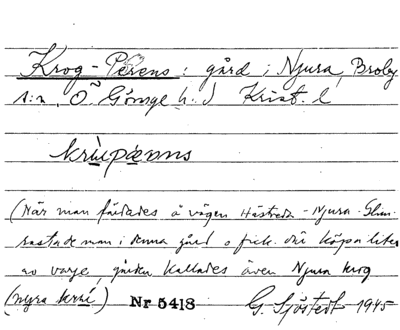 Krog-Perens : gård i Njura, Broby
s:n, Ö. Göinge h. Krist. l
krùpæ̀nns
(När man färdades å vägen Hästveda - Njura - Glim-
rastade man i denna gård o fick där köpa litet
av varje, gården kallades även Njura krog
(nyra krú) Nr 5418 G. Sjöstedt 1945